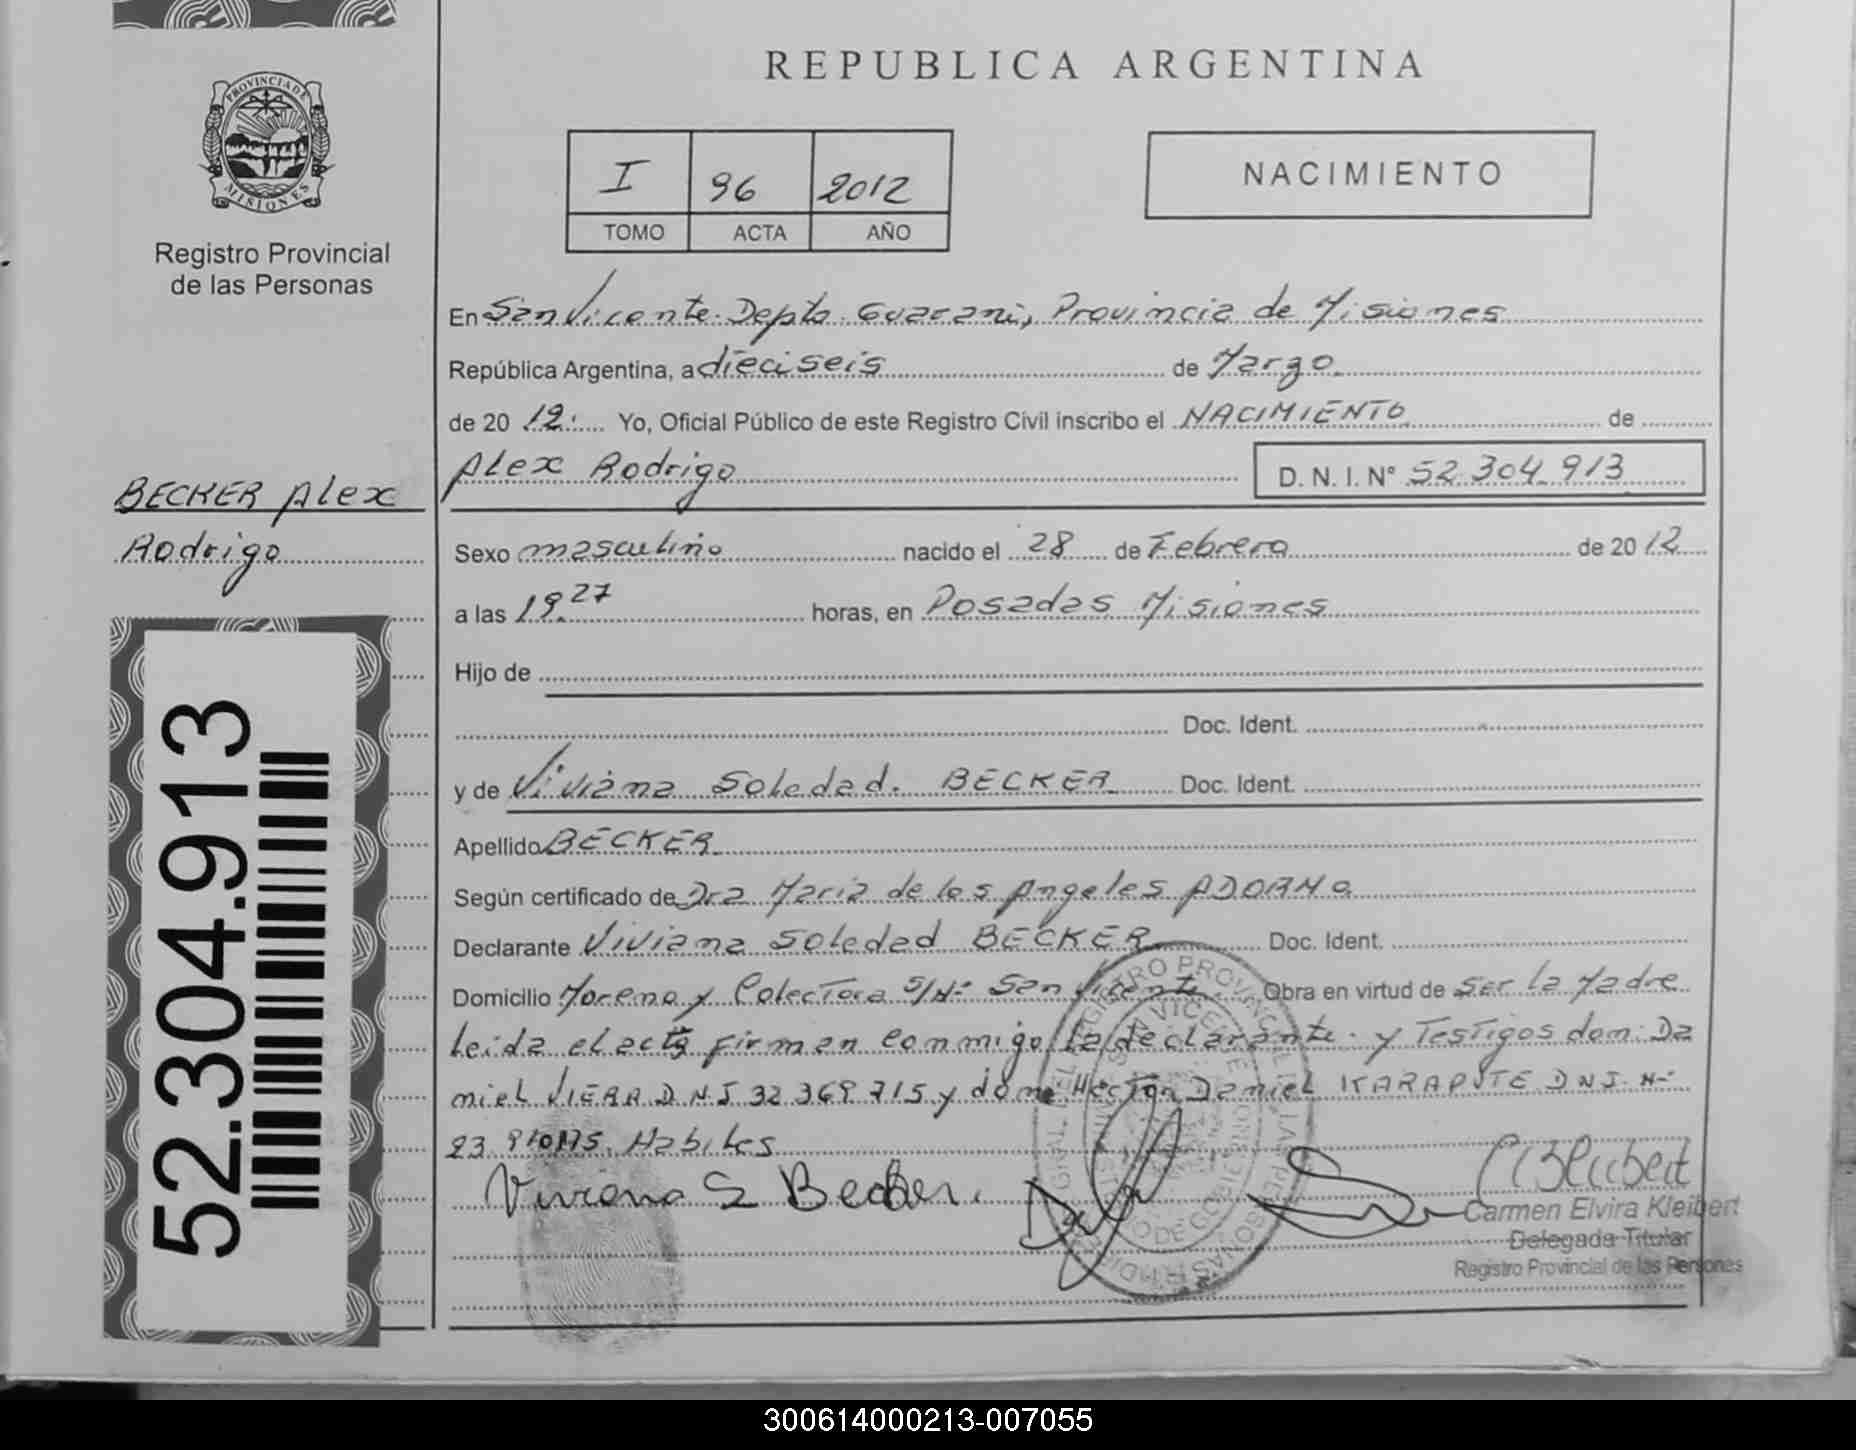 REPUBLICA ARGENTINA
PROVINCIA DE
MISIONES
Registro Provincial
de las Personas
I 96 2012
TOMO ACTA AÑO
NACIMIENTO
En San Vicente Depto Guarani, Provincia de Misiones
República Argentina, a dieciseis de Marzo
de 20 12. Yo, Oficial Público de este Registro Civil inscribo el NACIMIENTO de
Alex Rodrigo D. N. I. N° 52 304 913
BECKER Alex
Rodrigo
Sexo masculino nacido el 28 de Febrero de 20 12
a las 19 27 horas, en Posadas Misiones
Hijo de
Doc. Ident.
y de Viviana Soledad. BECKER Doc. Ident.
Apellido BECKER
Según certificado de Dra Maria de los Angeles ADORNO
Declarante Viviana Soledad BECKER Doc. Ident.
Domicilio Moreno y Colectora S/Nº San Vicente Obra en virtud de ser la Madre
leida el acta firman conmigo la declarante y Testigos don: Da
niel VIERA D N I 32 369 715 y don Hector Daniel KARAPUTE D N I Nº
23 Habiles
Viviana S Becker
52.304.913
Carmen Elvira Kleibert
Delegada Titular
Registro Provincial de las Personas
300614000213-007055